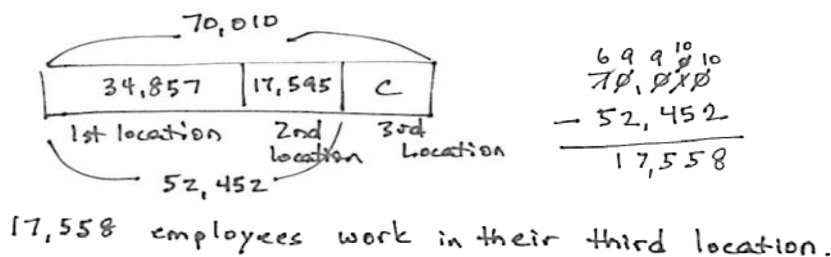 70,010
34,857 17,595 c
1st location 2nd location 3rd Location
52,452
6 9 9 10 10
70,010
- 52,452
17,558
17,558 employees work in their third location.